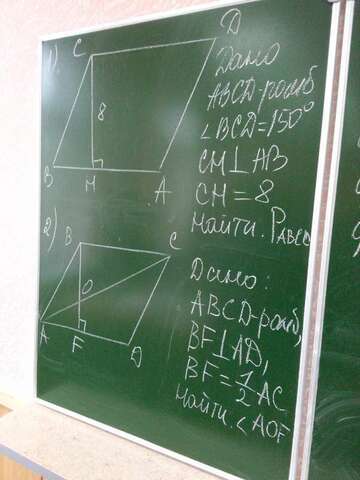 1).
C
D
8
B
M
A
Дано
ABCD-ромб
∠BCD=150°
CM⊥AB
CM=8
Найти. P_ABCD
2)
B
C
O
A
F
D
Дано:
ABCD-ромб,
BF⊥AD,
BF=1/2 AC
Найти. ∠AOF